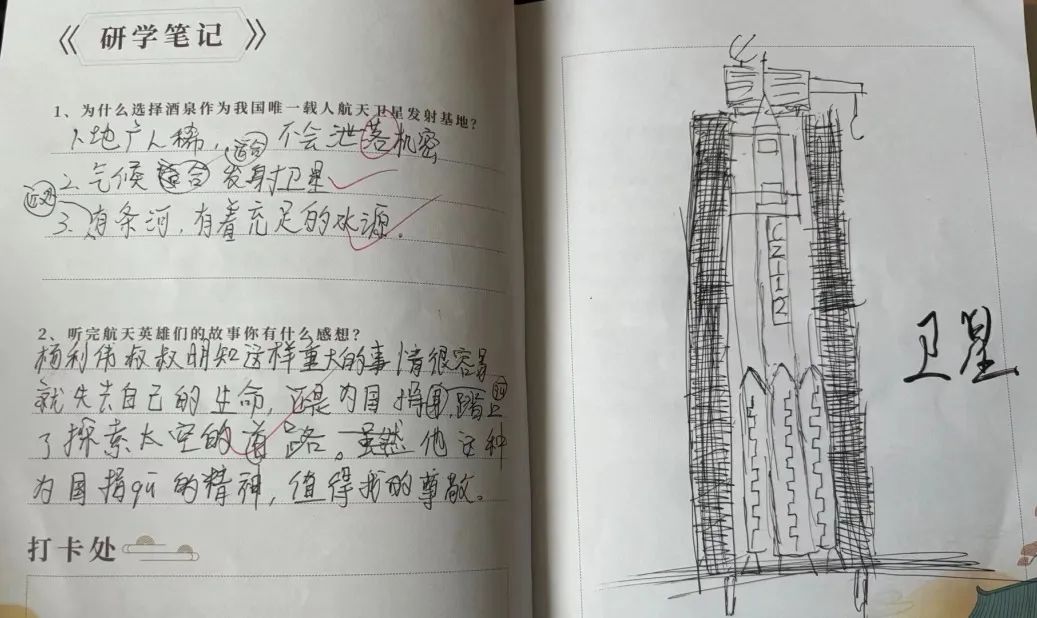 研学笔记
1、为什么选择酒泉作为我国唯一载人航天卫星发射基地?
1、地产人稀，不会泄落机密
适合
2、气候适合发射卫星
近处
3、有条河，有着充足的水源。
2、听完航天英雄们的故事你有什么感想?
杨利伟叔叔明知这样重大的事情很容易
就失去自己的生命，还是为国捐 踏上
了探索太空的道路。虽然他这种
为国捐qū的精神，值得我的尊敬。
打卡处
卫星